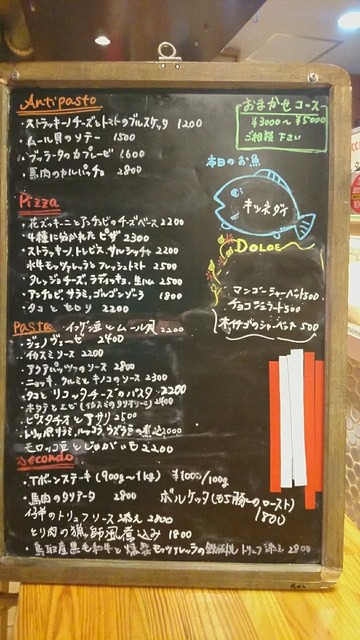 Antipasto
・ストラッキーノチーズとトマトのブルスケッタ 1200
・ムール貝のソテー 1500
・ブッラータのカプレーゼ 1600
・馬肉のカルパッチョ 2800
おまかせコース
¥3000〜¥5000
ご相談下さい
本日のお魚
キツネダイ
Pizza
・花ズッキーニとアンチョビのチーズベース 2200
・4種に分かれたピザ 2300
・ストラッキーノ、トレビス、サルシッチャ 2200
・水牛モッツァレラとフレッシュトマト 2500
・クレッシェンチーズ、ラディッキョ、生ハム 2500
・アンチョビ サラミ、ゴルゴンゾーラ 1800
・タコともち 2200
DOLCE
マンゴーシャーベット 500
チョコジェラート 500
木イチゴのシャーベット 500
Pasta
・インゲン豆とムール貝 2200
・ジェノヴェーゼ 2400
・イカスミソース 2200
・アクアパッツァのソース 2800
・ニョッキ、クルミとキノコのソース 2300
・タコとリコッタチーズのパスタ 2200
・ホタテとエビ 2400
・ピスタチオとアサリ 2500
・モロッコ豆とじゃがいも 2200
Secondo
・Tボーンステーキ (900g〜1kg) ¥1000/100g
・馬肉のタリアータ 2800
ポルケッタ(もち豚のロースト)
1800
・仔羊のトリュフソース添え 2800
・とり肉の猟師風煮込み 1800
・鳥取産黒毛和牛と燻製モッツァレッラの トリュフ添え 2800